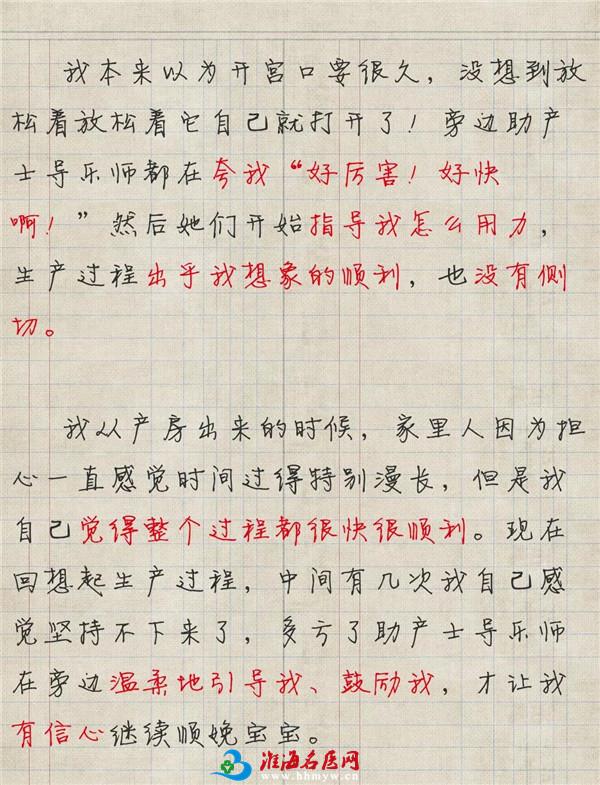 我本来以为开宫口要很久，没想到放
松着放松着它自己就打开了！旁边助产
士导乐师都在夸我“好厉害！好快
啊！”然后她们开始指导我怎么用力，
生产过程出乎我想象的顺利，也没有侧
切。
我从产房出来的时候，家里人因为担
心一直感觉时间过得特别漫长，但是我
自己觉得整个过程都很快很顺利。现在
回想起生产过程，中间有几次我自己感
觉坚持不下来了，多亏了助产士导乐师
在旁边温柔地引导我、鼓励我，才让我
有信心继续顺娩宝宝。
淮海名医网
www.hhmyw.cn